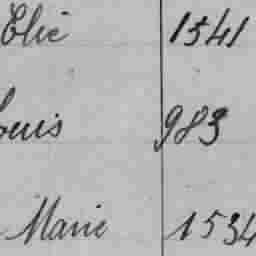 Elie 1541
Louis 983
Marie 1534